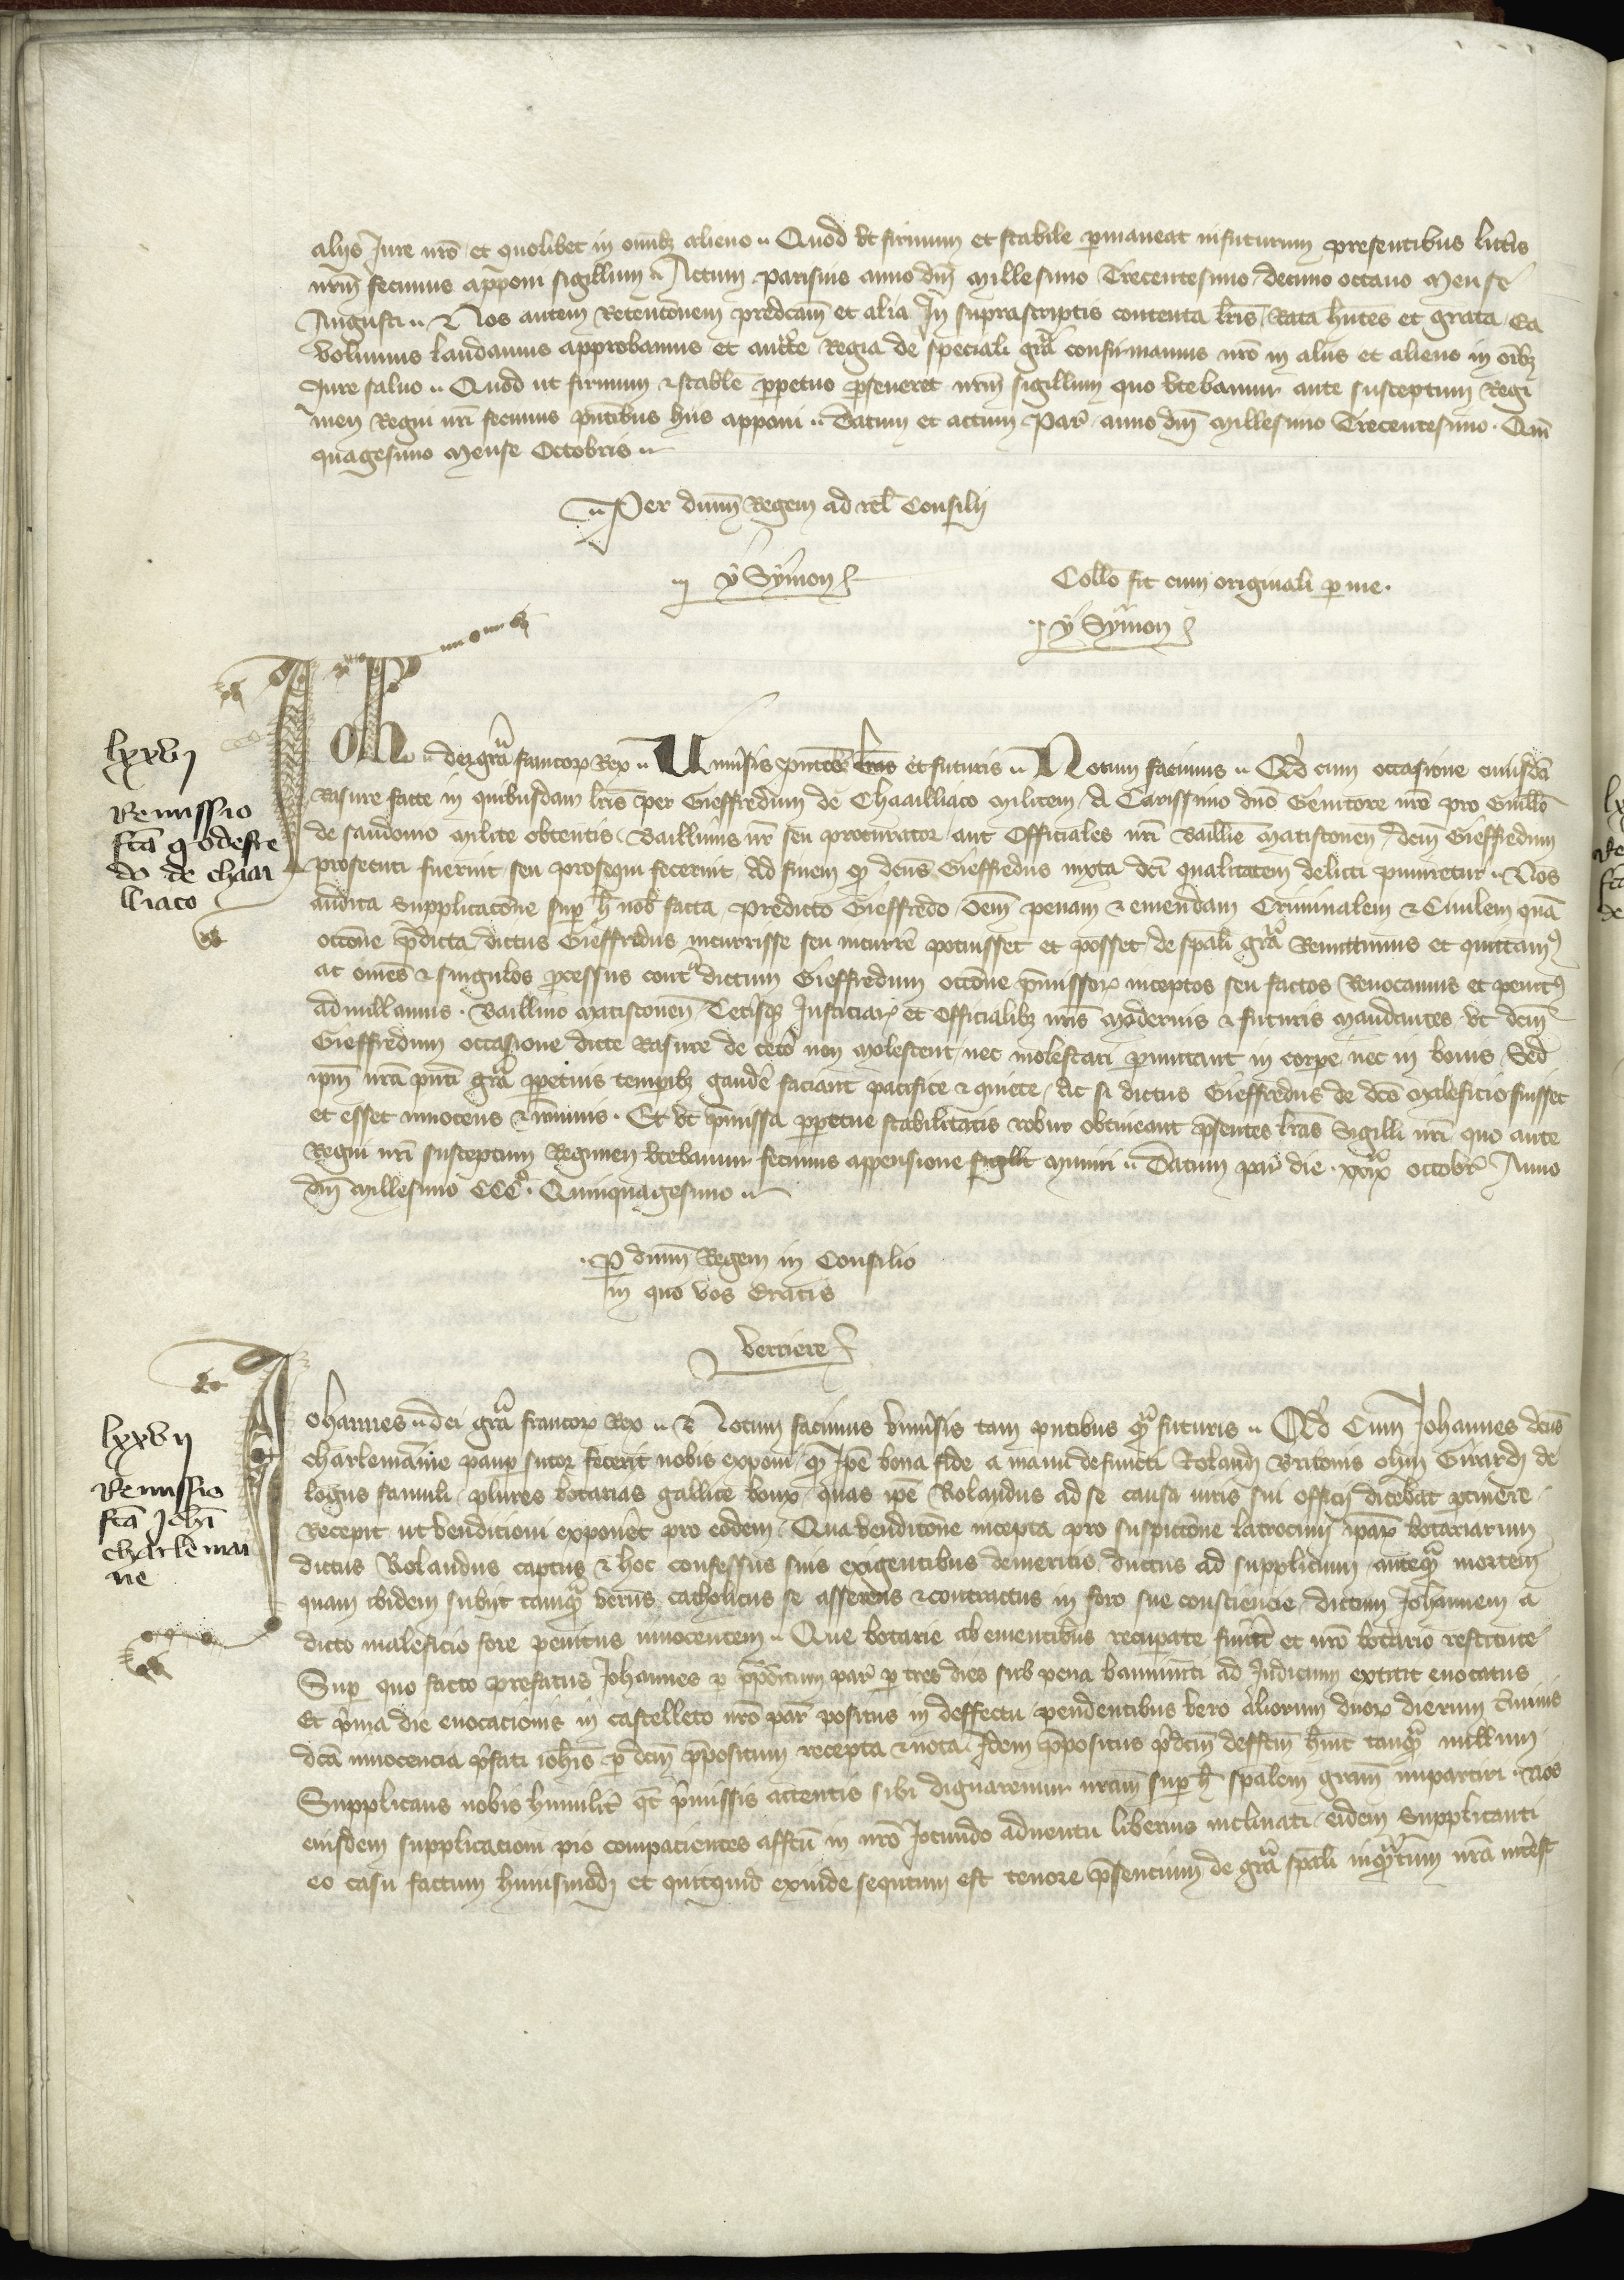 alijs Jure nr̄o et quolibet in om̄ib; alieno .. Quod vt firmum et stabile p̱maneat in futurum presentibus litt̄is
nr̄m̄ fecimus apponi sigillum .. Actum parisius anno dn̄i Millesimo Trecentesimo decimo octauo Mense
Augusti .. & Nos autem Retenc̄onem predcām et alia In suprascriptis contenta lr̄is Rata hn̄tes et grata Ea
volumus laudamus approbamus et auctᵗᵉ Regia de speciali gr̄a confirmamus nr̄o in aliis et alieno in oīb;
Jure saluo .. Quod ut firmum & stabile p̱petuo p̱seueret nr̄m̄ sigillum quo vtebamur ante susceptum Regi
men Regni nr̄i fecimus pn̄tibus hiis apponi .. Datum et actum Par̄ anno dn̄i Millesimo Trecentesimo . Qui̅
quagesimo Mense Octobris ..
.. Per dn̄m̄ Regem ad rel̄ Consilij
.. Y Symon
Coll̄o fit cum originali p̱ me .
.. Y Symon
lxxvj
Remissio
fcā godeffre
do de chaai
lliaco
Joh̄ .. dei gr̄a francor̄ Rex .. Uniu̅sis p̱ntib; lr̄as et futuris .. Notum facimus .. Qd̄ cum occasione cuiusdā
Rasure facte in quibusdam lr̄is per Gieffredum de Chaailliaco militem A Carissimo dn̄o Genitore nr̄o pro Guill̄o
de sandonio milite obtentis Bailliuus nr̄ seu procurator aut Officiales nr̄i Baill̄ie Matisconen̄ dc̄m̄ Gieffredum
prosecuti fuerint seu prosequi fecerint Ad finem qꝫ dcūs Gieffredus iuxta dc̄i qualitatem delicti puniretur .. Nos
audita supplicac̄one sup̱ h̄ nob̄ facta predicto Gieffredo oēm̄ penam & emendam Criminalem & Ciuilem quā
occōne p̄dicta dictus Gieffredus incurrisse seu incurre̅ potuisset et posset de spāli gr̄a Remittimus et quittamꝰ
ac om̄es & singulos p̱cessus contᵃ dictum Gieffredum occōne p̄missor̄ inceptos seu factos Reuocamus et penitꝰ
adnullamus . Bailliuo Matisconen̄ Cet̄isqꝫ Justiciar̄ et Officialib; nr̄is modernis & futuris mandantes vt dc̄m̄
Gieffredum occasione dicte Rasure de ceto̅ non molestent nec molestari p̱mittant in corpe̅ nec in bonis Sed
ip̄m̄ nr̄a pn̄ti gr̄a p̱petuis tempib; gaude̅ faciant pacifice & quiete Ac si dictus Gieffredus de dc̄o maleficio fuisset
et esset innocens & īmunis . Et vt p̄missa p̱petue stabilitatis robur obtineant p̄sentes lr̄as Sigilli nr̄i quo ante
Regni nr̄i susceptum Regimen vtebamur fecimus appensione sigilli muniri .. Datum par̄ die . xxixᵃ octobr̄ Anno
dn̄i Millesimo CCCᵒ . Quinquagesimo ..
. P̱ dn̄m̄ Regem in Consilio
in quo vos Eratis
Verriere
lxxvij
Remissio
fcā Joh̄i
charlemai
ne
Johannes .. dei gr̄a francor̄ Rex .. & Notum facimus vniu̅sis tam pn̄tibus qᵃ̄ futuris .. Qd̄ Cum Johannes dcūs
charlemaine paup̱ sutor fecerit nobis exponi qꝫ Ipē bona fide a manu defuncti Rolandj Britonis olim Girardj de
logus famuli plures botarias gallice boux quas ipē Rolandus ad se causa iuris sui officij dicebat p̱tinere
Recepit ut venditioni expone̅t pro eodem . Qua venditōne incepta pro suspicōne latrocinij ipār̄ botariarum
dictus Rolandus captus & hoc confessus suis exigentibus demeritis ductus ad supplicium anteqᵃ̄ mortem
quam ibidem subijt tamqᵃ̄ verus catholicus se asserens & contractus in foro sue consciencie dictum Johannem a
dicto maleficio fore penitus innocentem .. Que botarie ab ementibus recup̱ate fuer̄t et nr̄o botario restitute
Sup̱ quo facto prefatus Johannes p̱ p̄pōitum par̄ p̱ tres dies sub pena bannimēti ad Judicium extitit euocatus
Et p̄ma die euocacionis in castelleto nr̄o par̄ positus in deffectu pendentibus vero aliorum duor̄ dierum t̄minis
dcā innocencia p̄fati ioh̄is p̱ dc̄m̄ p̄positum recepta & nota Idem p̄positus p̄dcm̄ deffcm̄ h̄uit tanqᵃ̄ nullum
Supplicans nobis humilit̄ qt̄ p̄missis attentis sibi dignaremur nr̄am sup̱ h̄ spālem gr̄am impartiri .. Nos
eiusdem supplicacioni pio compacientes affcū in nr̄o Jocundo aduentu liberius inclinati eidem Supplicanti
eo casu factum huiusmodj et quitquid exinde sequtum est tenore p̄sentium de gr̄a spāli inqᵃ̄tum nr̄a int̄est